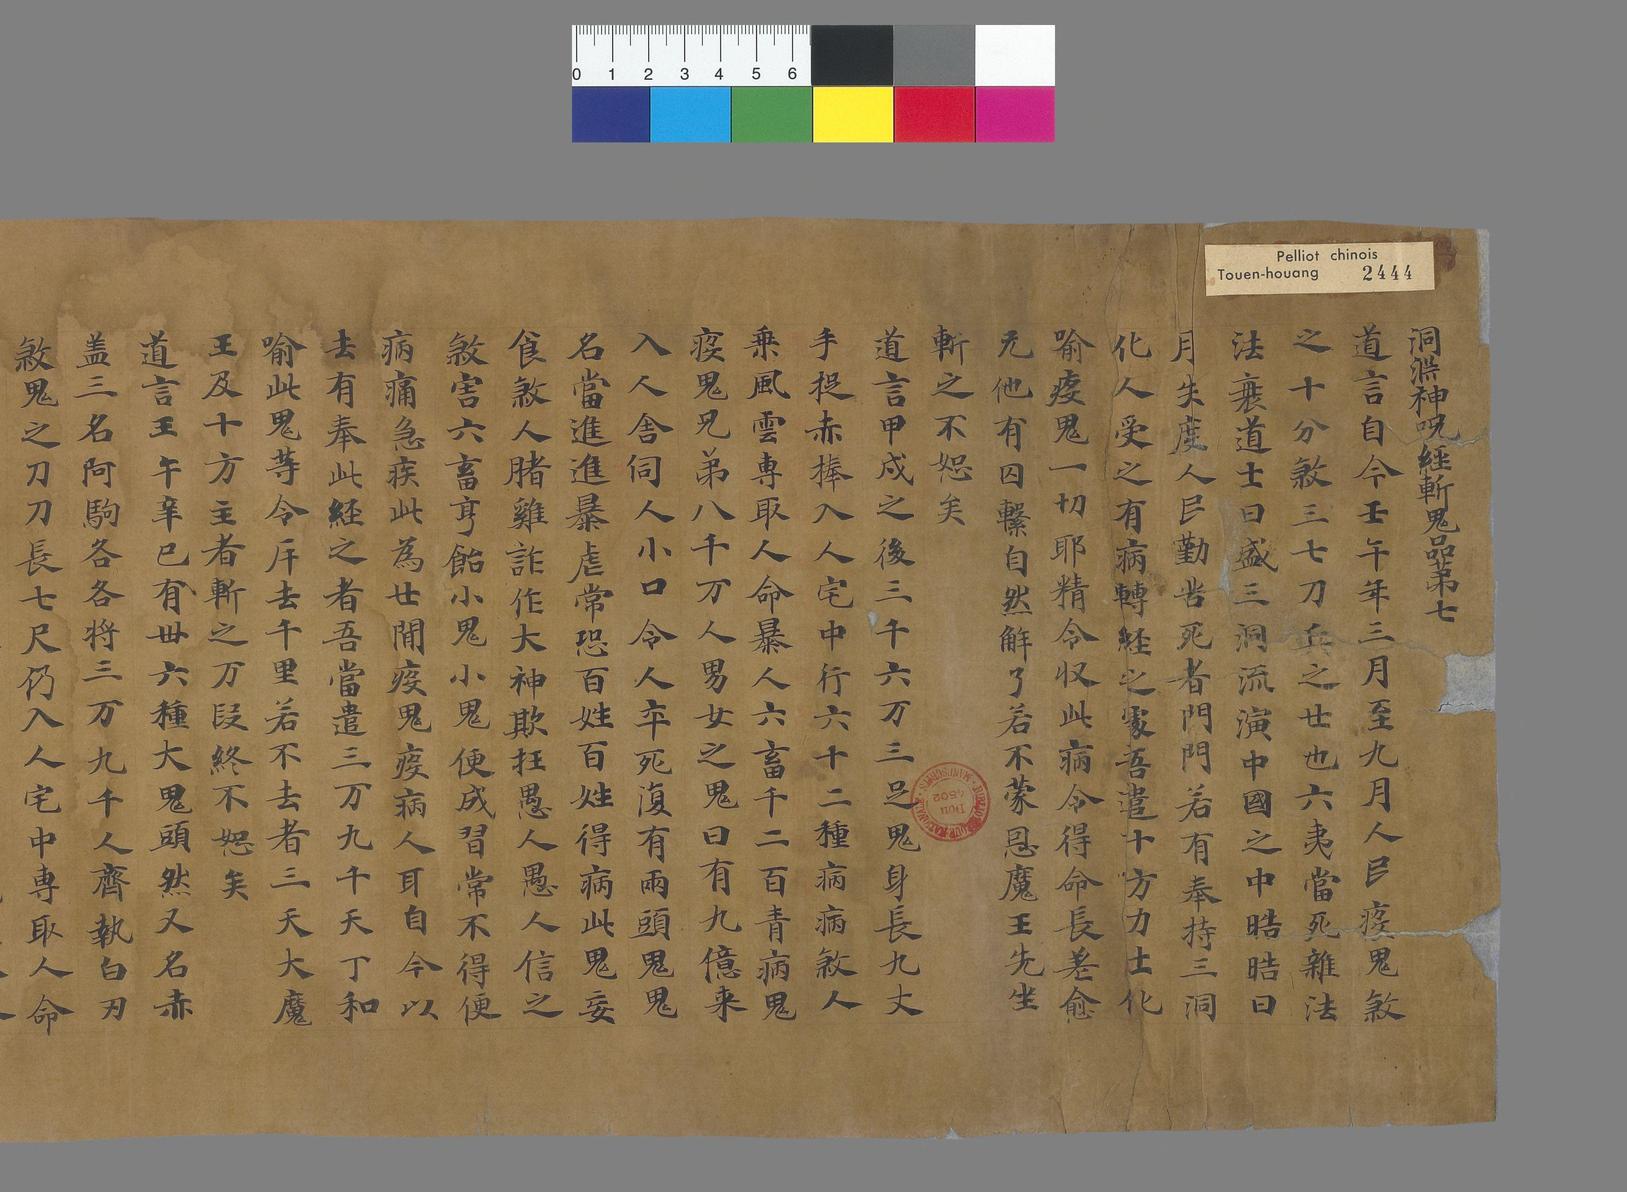 Pelliot chinois
Touen-houang 2444
0 1 2 3 4 5 6
洞淵神呪經斬鬼品第七
道言自今壬午年三月至九月人民疫鬼煞
之十分煞三七刀兵之世也六夷當死雜法
法衰道士日盛三洞流演中國之中晧晧日
月失度人民勤苦死者門門若有奉持三洞
化人受之有病轉経之家吾遣十方力士化
喻疫鬼一切耶精令収此病令得命長差愈
无他有囚繋自然解了若不蒙恩魔王先坐
斬之不恕矣
道言甲戌之後三千六万三足鬼身長九丈
手捉赤棒入人宅中行六十二種病病煞人
乗風雲専取人命暴人六畜千二百青病鬼
疫鬼兄弟八千万人男女之鬼日有九億来
入人舍伺人小口令人卒死復有兩頭鬼鬼
名當進進暴虐常恐百姓百姓得病此鬼妄
食煞人腤雞詐作大神欺抂愚人愚人信之
煞害六畜亨飴小鬼小鬼便成習常不得便
病痛急疾此為世間疫鬼疫病人耳自今以
去有奉此経之者吾當遣三万九千天丁和
喻此鬼等令斥去千里若不去者三天大魔
王及十方主者斬之万段終不恕矣
道言王午辛巳有丗六種大鬼頭然又名赤
盖三名阿駒各各将三万九千人齊執白刃
煞鬼之刀刀長七尺仍入人宅中専取人命